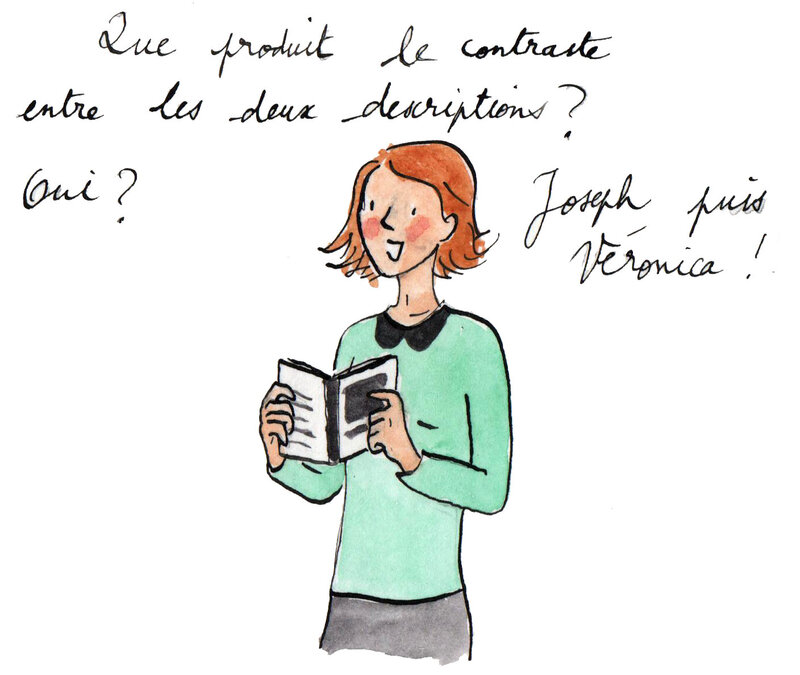 Que produit le contraste
entre les deux descriptions ?
Oui ?
Joseph puis
Véronica !